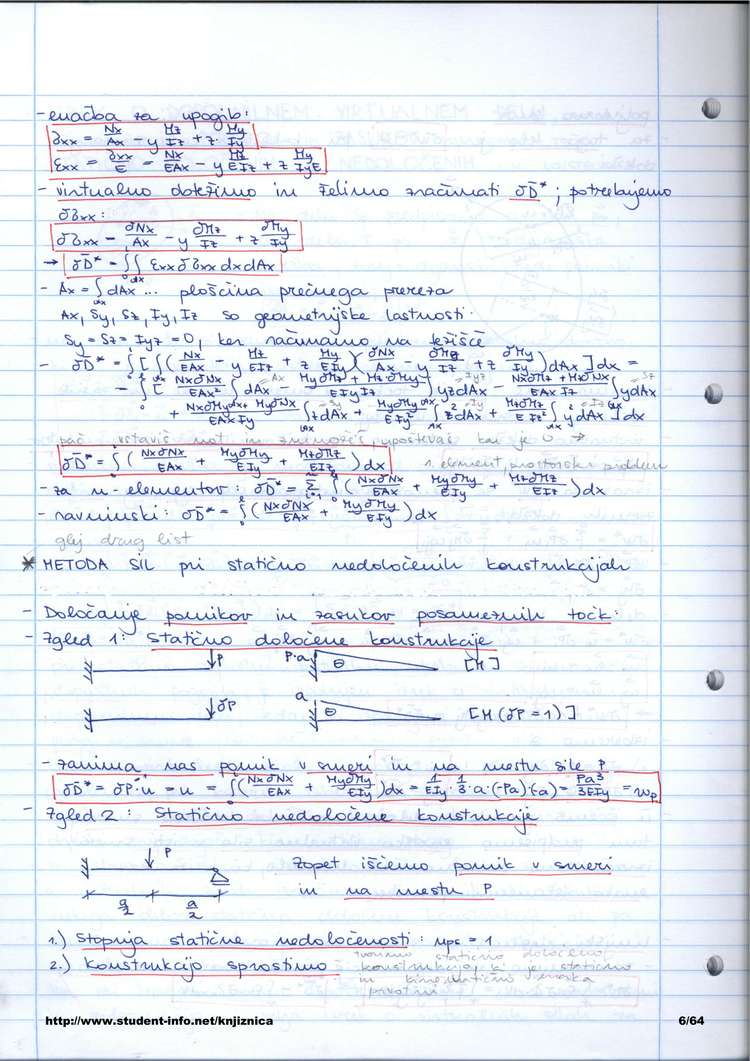 - enačba za upogib:
σxx = Nx/Ax - y Mz/Iz + z My/Iy
εxx = σxx/E = Nx/EAx - y Mz/EIz + z My/IyE
- virtualno dotežimo in želimo računati δD̄*; potrebujemo
δσxx:
δσxx = δNx/Ax - y δMz/Iz + z δMy/Iy
→ δD̄* = ∫∫ εxx δσxx dx dAx
- Ax = ∫ dAx ... ploščina prečnega prereza
Ax, Sy, Sz, Iy, Iz so geometrijske lastnosti.
Sy = Sz = Iyz = 0, ker računamo na težišče
- δD̄* = ∫ [ ∫ ( Nx/EAx - y Mz/EIz + z My/EIy )( δNx/Ax - y δMz/Iz + z δMy/Iy ) dAx ] dx =
= ∫ [ NxδNx/EAx² ∫ dAx - (MyδMz + MzδMy)/EIyIz ∫ yz dAx - (NxδMz + MzδNx)/EAxIz ∫ y dAx
+ (NxδMy + MyδNx)/EAxIy ∫ z dAx + MyδMy/EIy² ∫ z² dAx + MzδMz/EIz² ∫ y² dAx ] dx
pač vstaviš not in zmnožiš, upoštevaš kar je 0 →
δD̄* = ∫ ( NxδNx/EAx + MyδMy/EIy + MzδMz/EIz ) dx 1. element, prostorski problem
- za n-elementov: δD̄* = Σ ∫ ( NxδNx/EAx + MyδMy/EIy + MzδMz/EIz ) dx
- ravninski: δD̄* = ∫ ( NxδNx/EAx + MyδMy/EIy ) dx
glej drug list
* METODA SIL pri statično nedoločenih konstrukcijah
- Določanje pomikov in zasukov posameznih točk:
- Zgled 1: Statično določene konstrukcije
P P·a ⊖ [M]
δP a ⊖ [M (δP = 1)]
- zanima nas pomik v smeri in na mestu sile P
δD̄* = δP·u = u = ∫ ( NxδNx/EAx + MyδMy/EIy ) dx = 1/EIy · 1/3 · a·(-Pa)·(-a) = Pa³/3EIy = wp
- Zgled 2: Statično nedoločene konstrukcije
P Zopet iščemo pomik v smeri
a/2 a/2 in na mestu P
1.) Stopnja statične nedoločenosti: nps = 1
2.) Konstrukcijo sprostimo - tvorimo statično določeno
konstrukcijo, ki je statično
in kinematično enaka
prvotni
http://www.student-info.net/knjiznica 6/64